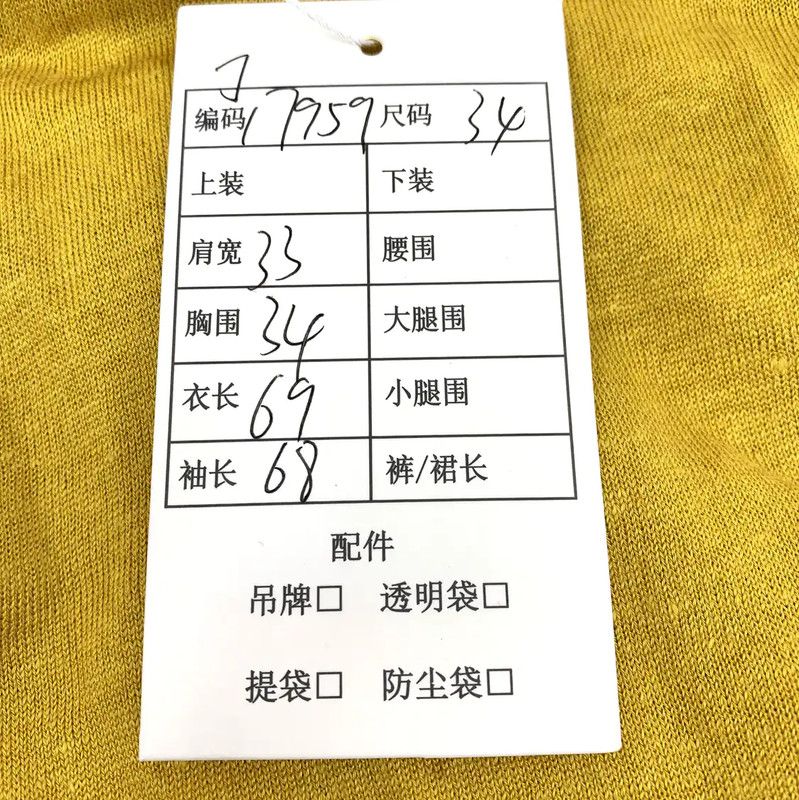 编码 17959 尺码 34
上装 下装
肩宽 33 腰围
胸围 34 大腿围
衣长 69 小腿围
袖长 68 裤/裙长
配件
吊牌□ 透明袋□
提袋□ 防尘袋□